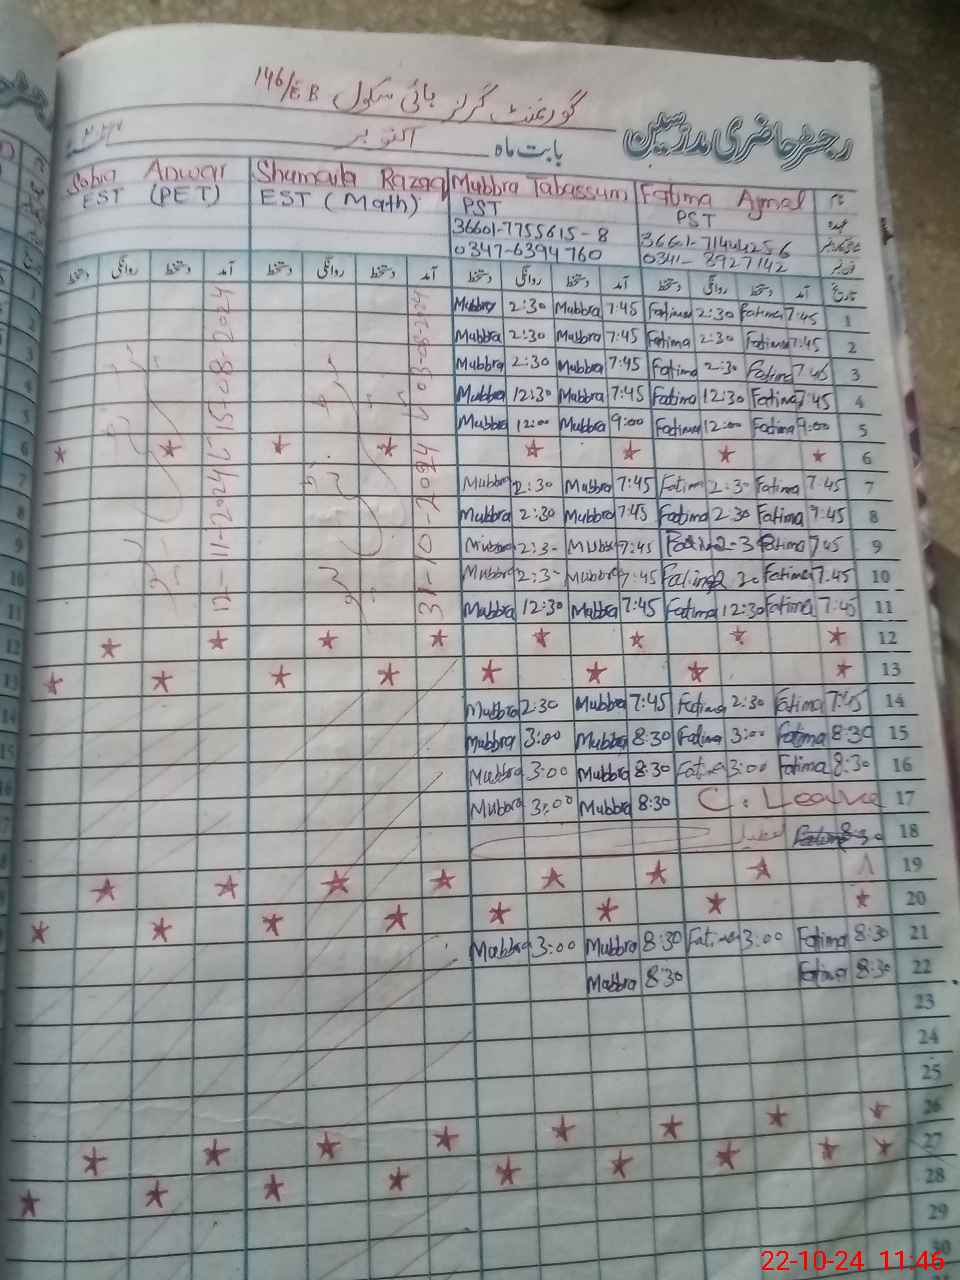 گورنمنٹ گرلز ہائی سکول 146/EB
رجسٹر حاضری مدرسین
بابت ماہ اکتوبر
Sobia Anwar Shumaila Razaq Mubbra Tabassum Fatima Ajmal نام
EST (PET) EST (Math) PST PST عہدہ
36601-7755615-8 36601-71444256
0347-6394760 0341-8927142
دستخط روانگی دستخط آمد دستخط روانگی دستخط آمد دستخط روانگی دستخط آمد دستخط روانگی دستخط آمد تاریخ
Mubbra 2:30 Mubbra 7:45 Fatima 2:30 Fatima 7:45 1
Mubbra 2:30 Mubbra 7:45 Fatima 2:30 Fatima 7:45 2
Mubbra 2:30 Mubbra 7:45 Fatima 2:30 Fatima 7:45 3
Mubbra 12:30 Mubbra 7:45 Fatima 12:30 Fatima 7:45 4
Mubbra 12:00 Mubbra 9:00 Fatima 12:00 Fatima 9:00 5
6
Mubbra 2:30 Mubbra 7:45 Fatima 2:30 Fatima 7:45 7
Mubbra 2:30 Mubbra 7:45 Fatima 2:30 Fatima 7:45 8
Mubbra 2:3- Mubbra 7:45 Fatima 2-3 Fatima 7:45 9
Mubbra 2:3- Mubbra 7:45 Fatima 2:30 Fatima 7:45 10
Mubbra 12:30 Mubbra 7:45 Fatima 12:30 Fatima 7:45 11
12
13
Mubbra 2:30 Mubbra 7:45 Fatima 2:30 Fatima 7:45 14
Mubbra 3:00 Mubbra 8:30 Fatima 3:00 Fatima 8:30 15
Mubbra 3:00 Mubbra 8:30 Fatima 3:00 Fatima 8:30 16
Mubbra 3:00 Mubbra 8:30 C. Leave 17
تعطیل Fatima 8:30 18
19
20
Mubbra 3:00 Mubbra 8:30 Fatima 3:00 Fatima 8:30 21
Mubbra 8:30 Fatima 8:30 22
23
24
25
26
27
28
29
30
15-08-2024
12-11-2024
31-10-2024
22-10-24 11:46